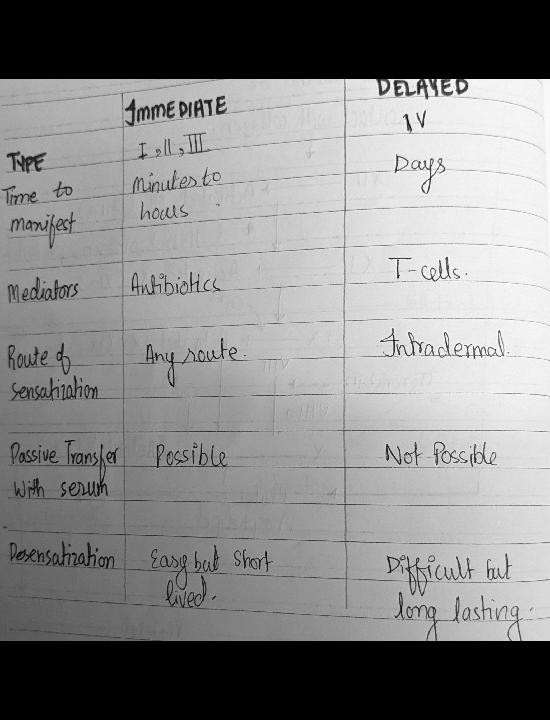 IMMEDIATE DELAYED
TYPE I, II, III IV
Time to manifest minutes to hours Days
Mediators Antibiotics T-cells.
Route of sensatization Any route. Intradermal.
Passive Transfer with serum Possible Not Possible
Desensatization Easy but short lived. Difficult but long lasting.